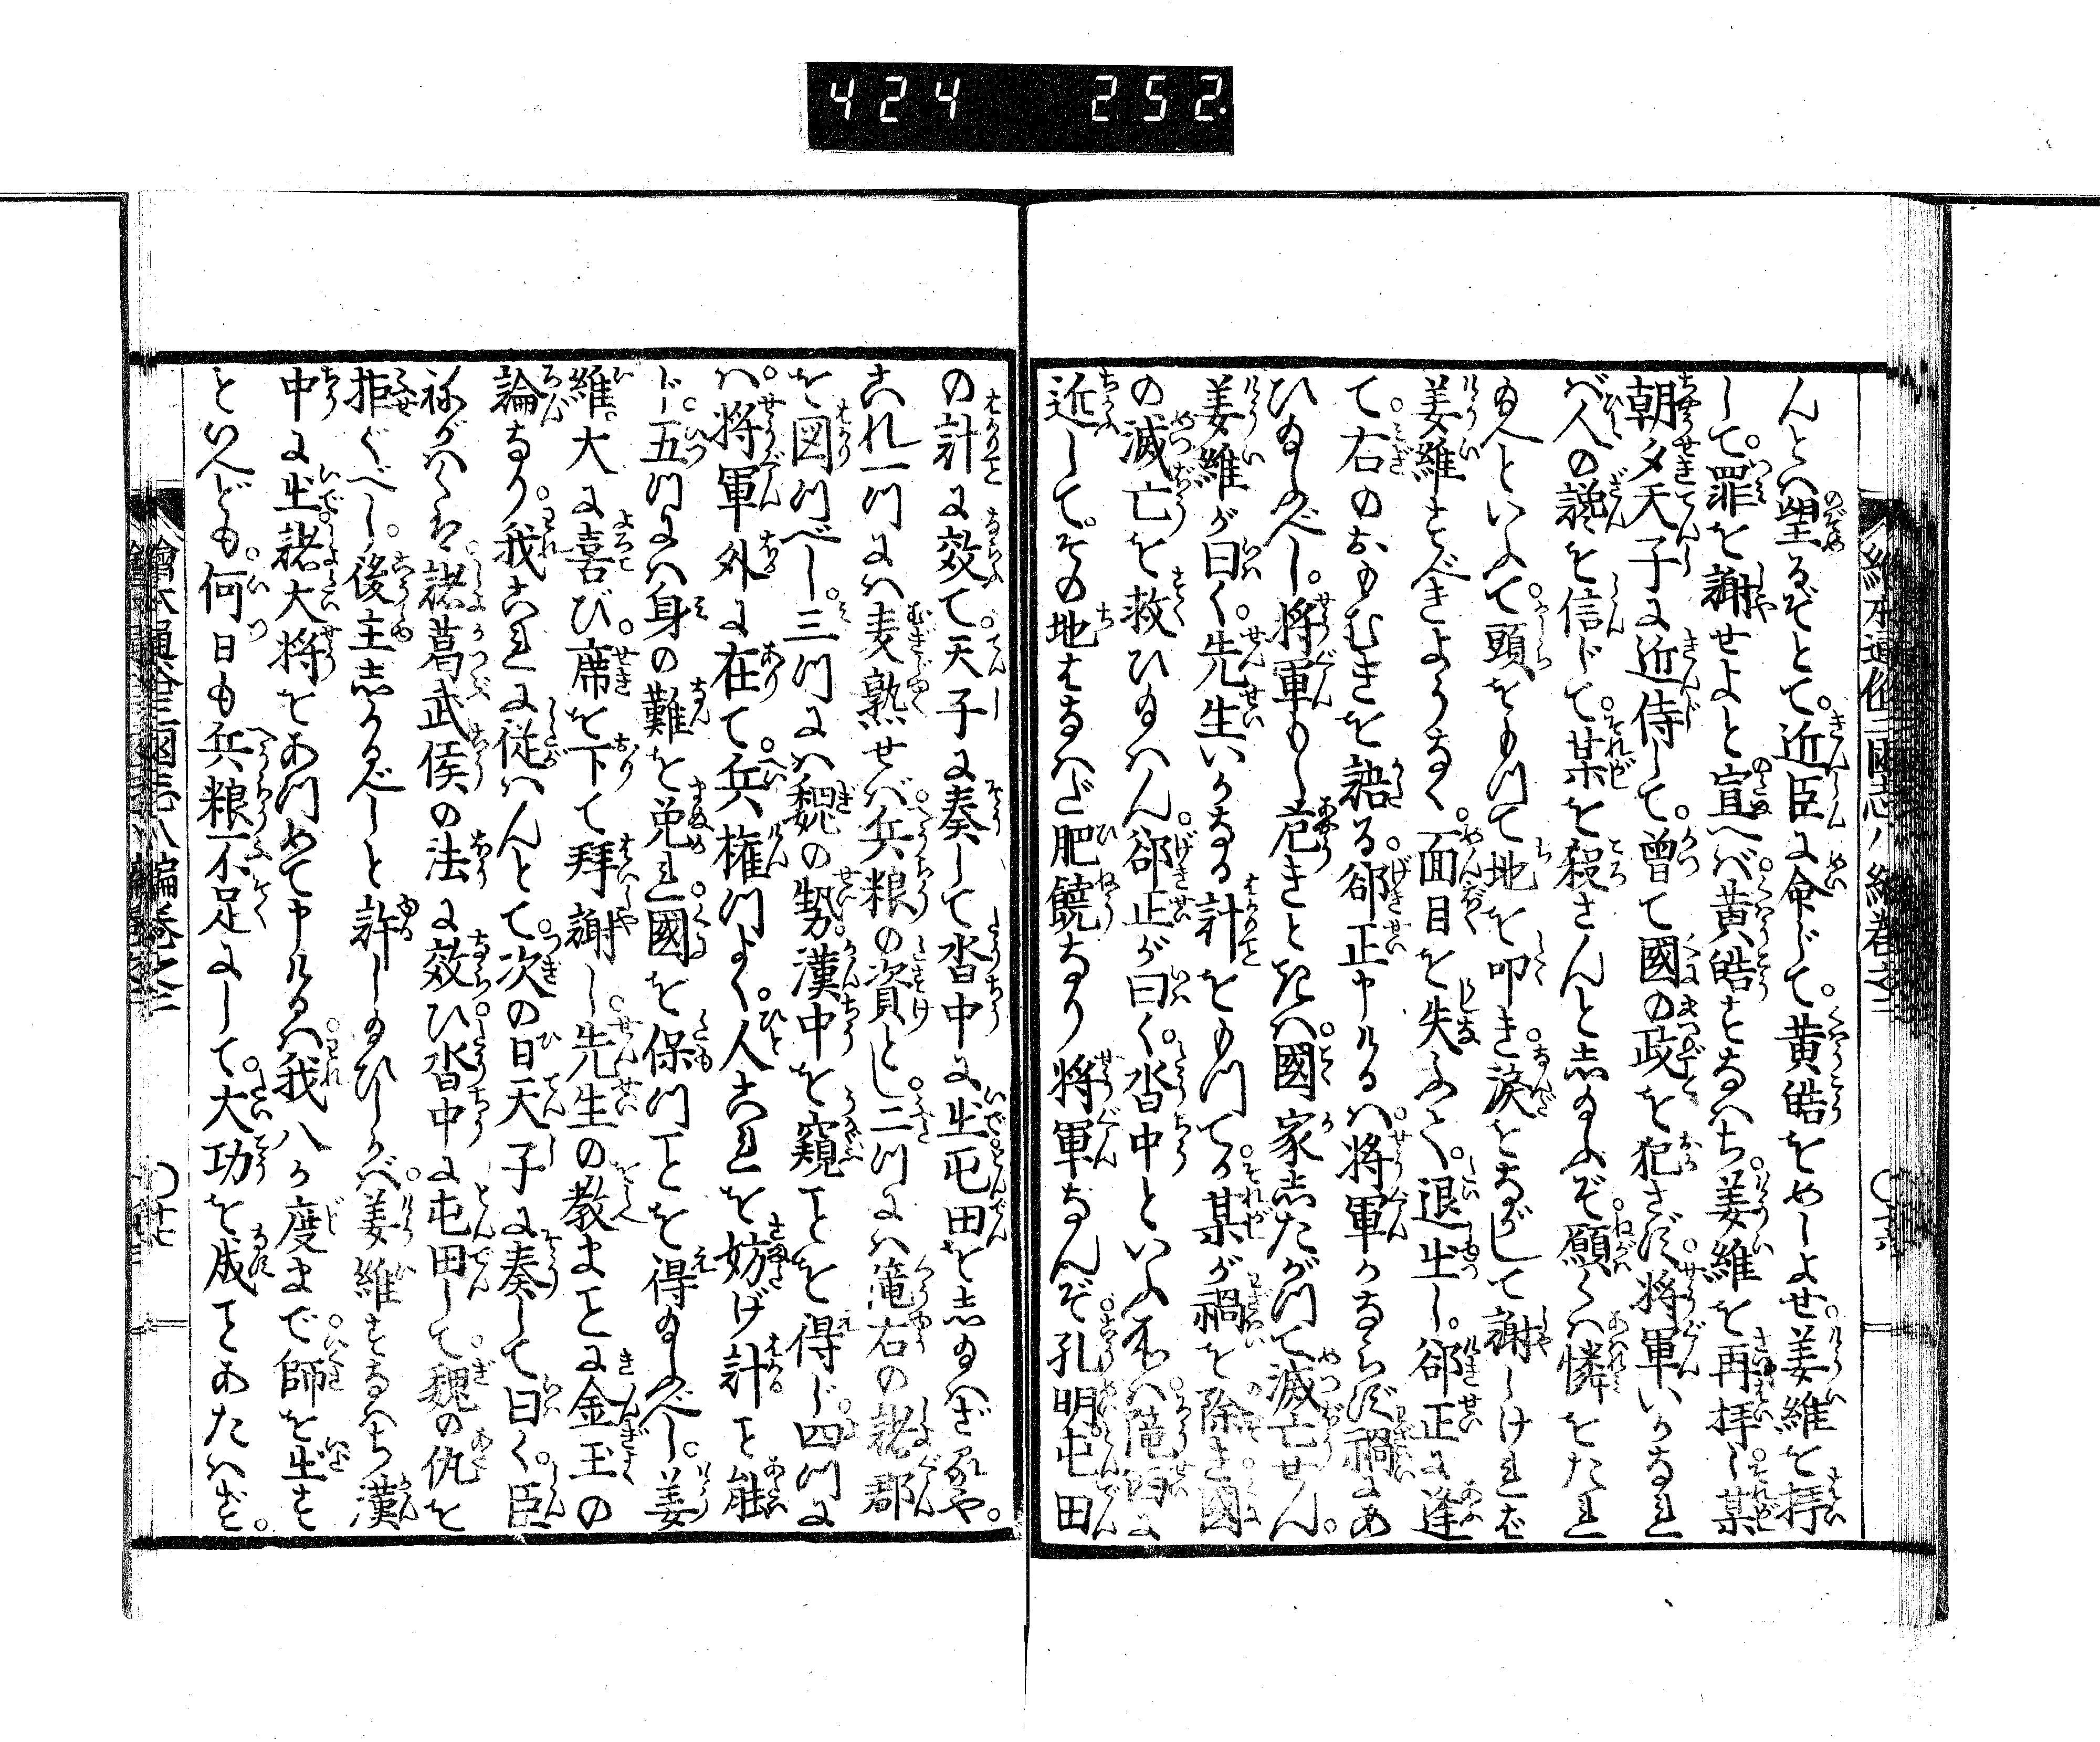 424 252
んとハ望るぞとて。近臣に命じて。黄皓をめしよせ。姜維を拝
して。罪を謝せよと宣へバ。黄皓すなハち。姜維を再拝し。某
朝夕天子に近侍して。曾て國の政を犯さず。将軍いかなれ
バ人の讒を信じて。某を殺さんとし給ふぞ。願くハ憐をたれ
給へといふて。頭をもつて地を叩き。涙をながして謝しけれど
姜維すべきようなく。面目を失ふて。退出し。郤正に逢
て。右のおもむきを語る。郤正申けるハ。将軍かならず禍にあ
ひ給ふべし。将軍もし危きときハ。國家したがつて滅亡せん。
姜維が曰く。先生いかなる計をもつてか。某が禍を除き。國
の滅亡を救ひ給ハん。郤正が曰く。沓中といふ所ハ。隴西に
近して。その地はなハだ肥饒なり。将軍なんぞ。孔明屯田
の計に效て。天子に奏して。沓中に出。屯田をし給ハざるや。
これ一つにハ麦熟せバ。兵粮の資とし。二つにハ隴右の諸郡
を図つべし。三つにハ魏の勢。漢中を窺ことを得じ。四つに
ハ。将軍外に在て。兵権つよく。人これを妨げ計こと能
ず。五つにハ身の難を免れ。國を保つことを得給ふべし。姜
維。大に喜び。席を下て拜謝し。先生の教まことに金玉の
論なり。我これに従ハんとて。次の日天子に奏して曰く。臣
ねがハくハ。諸葛武侯の法に效ひ。沓中に屯田して。魏の仇を
拒ぐべし。後主しかるべしと許し給ひしかバ。姜維すなハち漢
中に出。諸大将をあつめて申けるハ。我八か度まで。師を出す
といへども。何日も兵粮不足にして。大功を成ことあたハず。